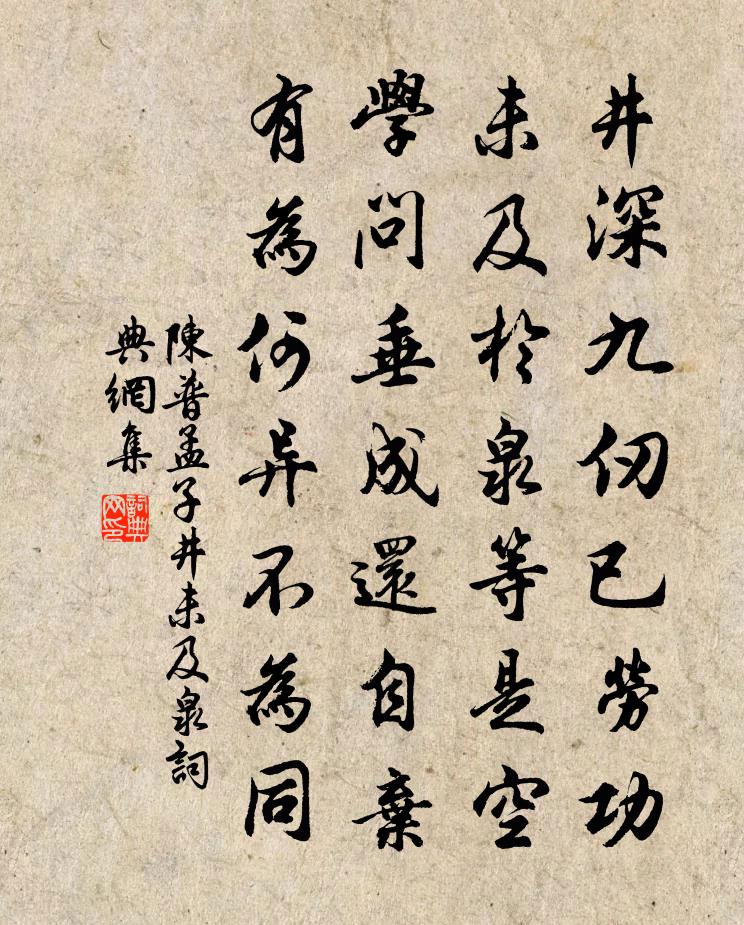 井深九仞已勞功
未及於泉等是空
學問垂成還自棄
有為何异不為同
陳普孟子井未及泉詞
典網集
詞典網印